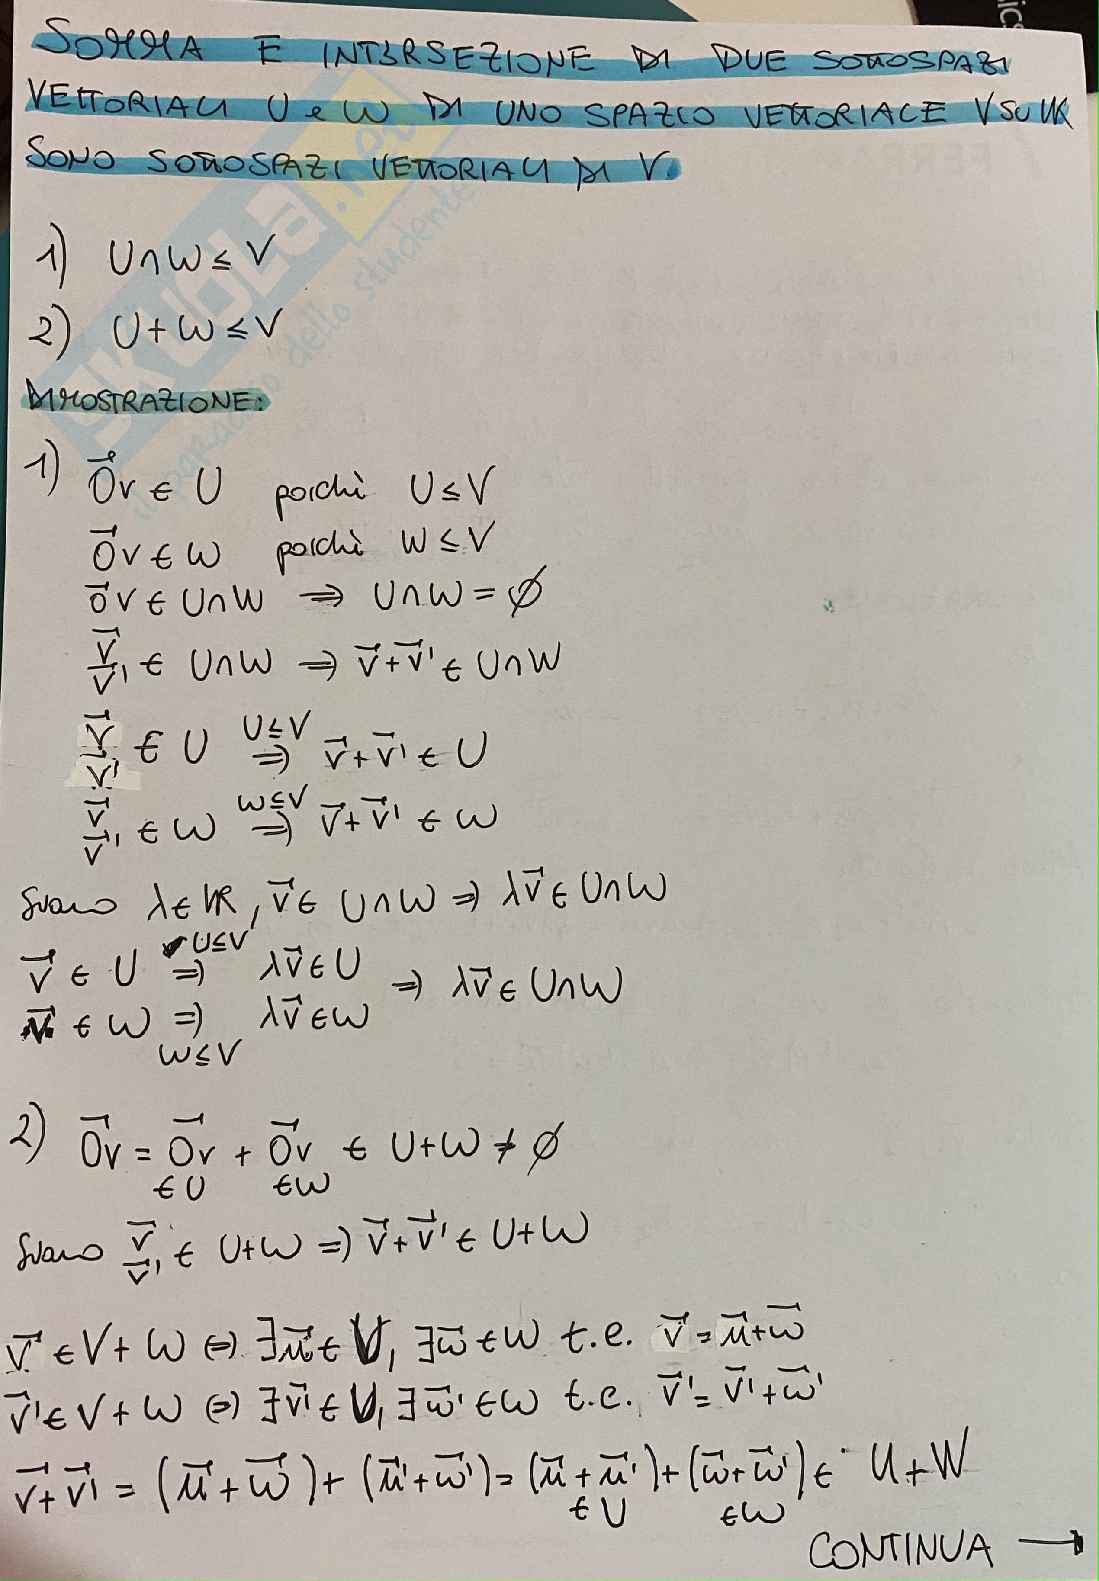 SOMMA E INTERSEZIONE DI DUE SOTTOSPAZI
VETTORIALI U e W DI UNO SPAZIO VETTORIALE V SU K
SONO SOTTOSPAZI VETTORIALI DI V.
1) U∩W ≤ V
2) U+W ≤ V
DIMOSTRAZIONE:
1) 0⃗v ∈ U poichè U ≤ V
0⃗v ∈ W poichè W ≤ V
0⃗v ∈ U∩W ⇒ U∩W = ∅
v⃗, v⃗' ∈ U∩W ⇒ v⃗+v⃗' ∈ U∩W
v⃗, v⃗' ∈ U ⇒ (U≤V) v⃗+v⃗' ∈ U
v⃗, v⃗' ∈ W ⇒ (W≤V) v⃗+v⃗' ∈ W
Siano λ ∈ K, v⃗ ∈ U∩W ⇒ λv⃗ ∈ U∩W
v⃗ ∈ U ⇒ (U≤V) λv⃗ ∈ U
⇒ λv⃗ ∈ U∩W
v⃗ ∈ W ⇒ λv⃗ ∈ W
W≤V
2) 0⃗v = 0⃗v + 0⃗v ∈ U+W ≠ ∅
∈U ∈W
Siano v⃗, v⃗' ∈ U+W ⇒ v⃗+v⃗' ∈ U+W
v⃗ ∈ V+W ⇔ ∃u⃗ ∈ U, ∃w⃗ ∈ W t.c. v⃗ = u⃗+w⃗
v⃗' ∈ V+W ⇔ ∃v⃗' ∈ U, ∃w⃗' ∈ W t.c. v⃗' = v⃗'+w⃗'
v⃗+v⃗' = (u⃗+w⃗)+(u⃗'+w⃗') = (u⃗+u⃗')+(w⃗+w⃗') ∈ U+W
∈U ∈W
CONTINUA →
SKUOLA.net
il paradiso dello studente